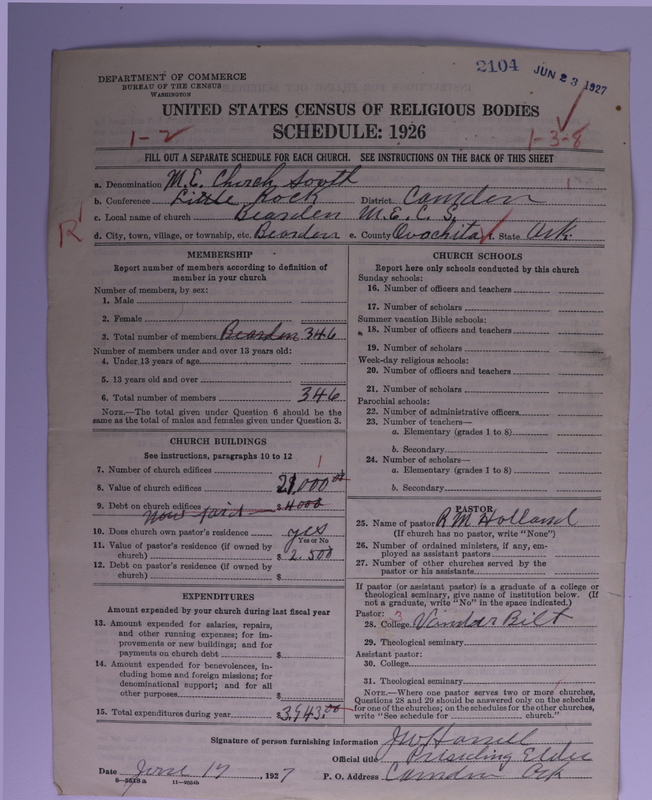 2104 JUN 23 1927
DEPARTMENT OF COMMERCE
BUREAU OF THE CENSUS
WASHINGTON
UNITED STATES CENSUS OF RELIGIOUS BODIES
SCHEDULE: 1926
1-2
1-3-8
FILL OUT A SEPARATE SCHEDULE FOR EACH CHURCH. SEE INSTRUCTIONS ON THE BACK OF THIS SHEET
a. Denomination M.E. Church South
b. Conference Little Rock District Camden
c. Local name of church Bearden M.E.C.S.
R
d. City, town, village, or township, etc. Bearden e. County Ouachita f. State Ark.
MEMBERSHIP
Report number of members according to definition of
member in your church
Number of members, by sex:
1. Male
2. Female
3. Total number of members Bearden 346
Number of members under and over 13 years old:
4. Under 13 years of age
5. 13 years old and over
6. Total number of members 346
NOTE.—The total given under Question 6 should be the
same as the total of males and females given under Question 3.
CHURCH BUILDINGS
See instructions, paragraphs 10 to 12
7. Number of church edifices 1
8. Value of church edifices 21,000.00
9. Debt on church edifices $4000
Now paid
10. Does church own pastor's residence yes
Yes or No
11. Value of pastor's residence (if owned by
church) $2.500
12. Debt on pastor's residence (if owned by
church) $
EXPENDITURES
Amount expended by your church during last fiscal year
13. Amount expended for salaries, repairs,
and other running expenses; for im-
provements or new buildings; and for
payments on church debt $
14. Amount expended for benevolences, in-
cluding home and foreign missions; for
denominational support; and for all
other purposes $
15. Total expenditures during year $3,943.00
CHURCH SCHOOLS
Report here only schools conducted by this church
Sunday schools:
16. Number of officers and teachers
17. Number of scholars
Summer vacation Bible schools:
18. Number of officers and teachers
19. Number of scholars
Week-day religious schools:
20. Number of officers and teachers
21. Number of scholars
Parochial schools:
22. Number of administrative officers
23. Number of teachers—
a. Elementary (grades 1 to 8)
b. Secondary
24. Number of scholars—
a. Elementary (grades 1 to 8)
b. Secondary
PASTOR
25. Name of pastor R M Holland
(If church has no pastor, write "None")
26. Number of ordained ministers, if any, em-
ployed as assistant pastors
27. Number of other churches served by the
pastor or his assistants
If pastor (or assistant pastor) is a graduate of a college or
theological seminary, give name of institution below. (If
not a graduate, write "No" in the space indicated.)
Pastor: 3
28. College Vandar Bilt
29. Theological seminary
Assistant pastor:
30. College
31. Theological seminary
NOTE.—Where one pastor serves two or more churches,
Questions 28 and 29 should be answered only on the schedule
for one of the churches; on the schedules for the other churches,
write "See schedule for church."
Signature of person furnishing information J W Harrell
Official title Presiding Elder
Date June 17, 1927 P. O. Address Camden Ark
8-5518a 11-9554b